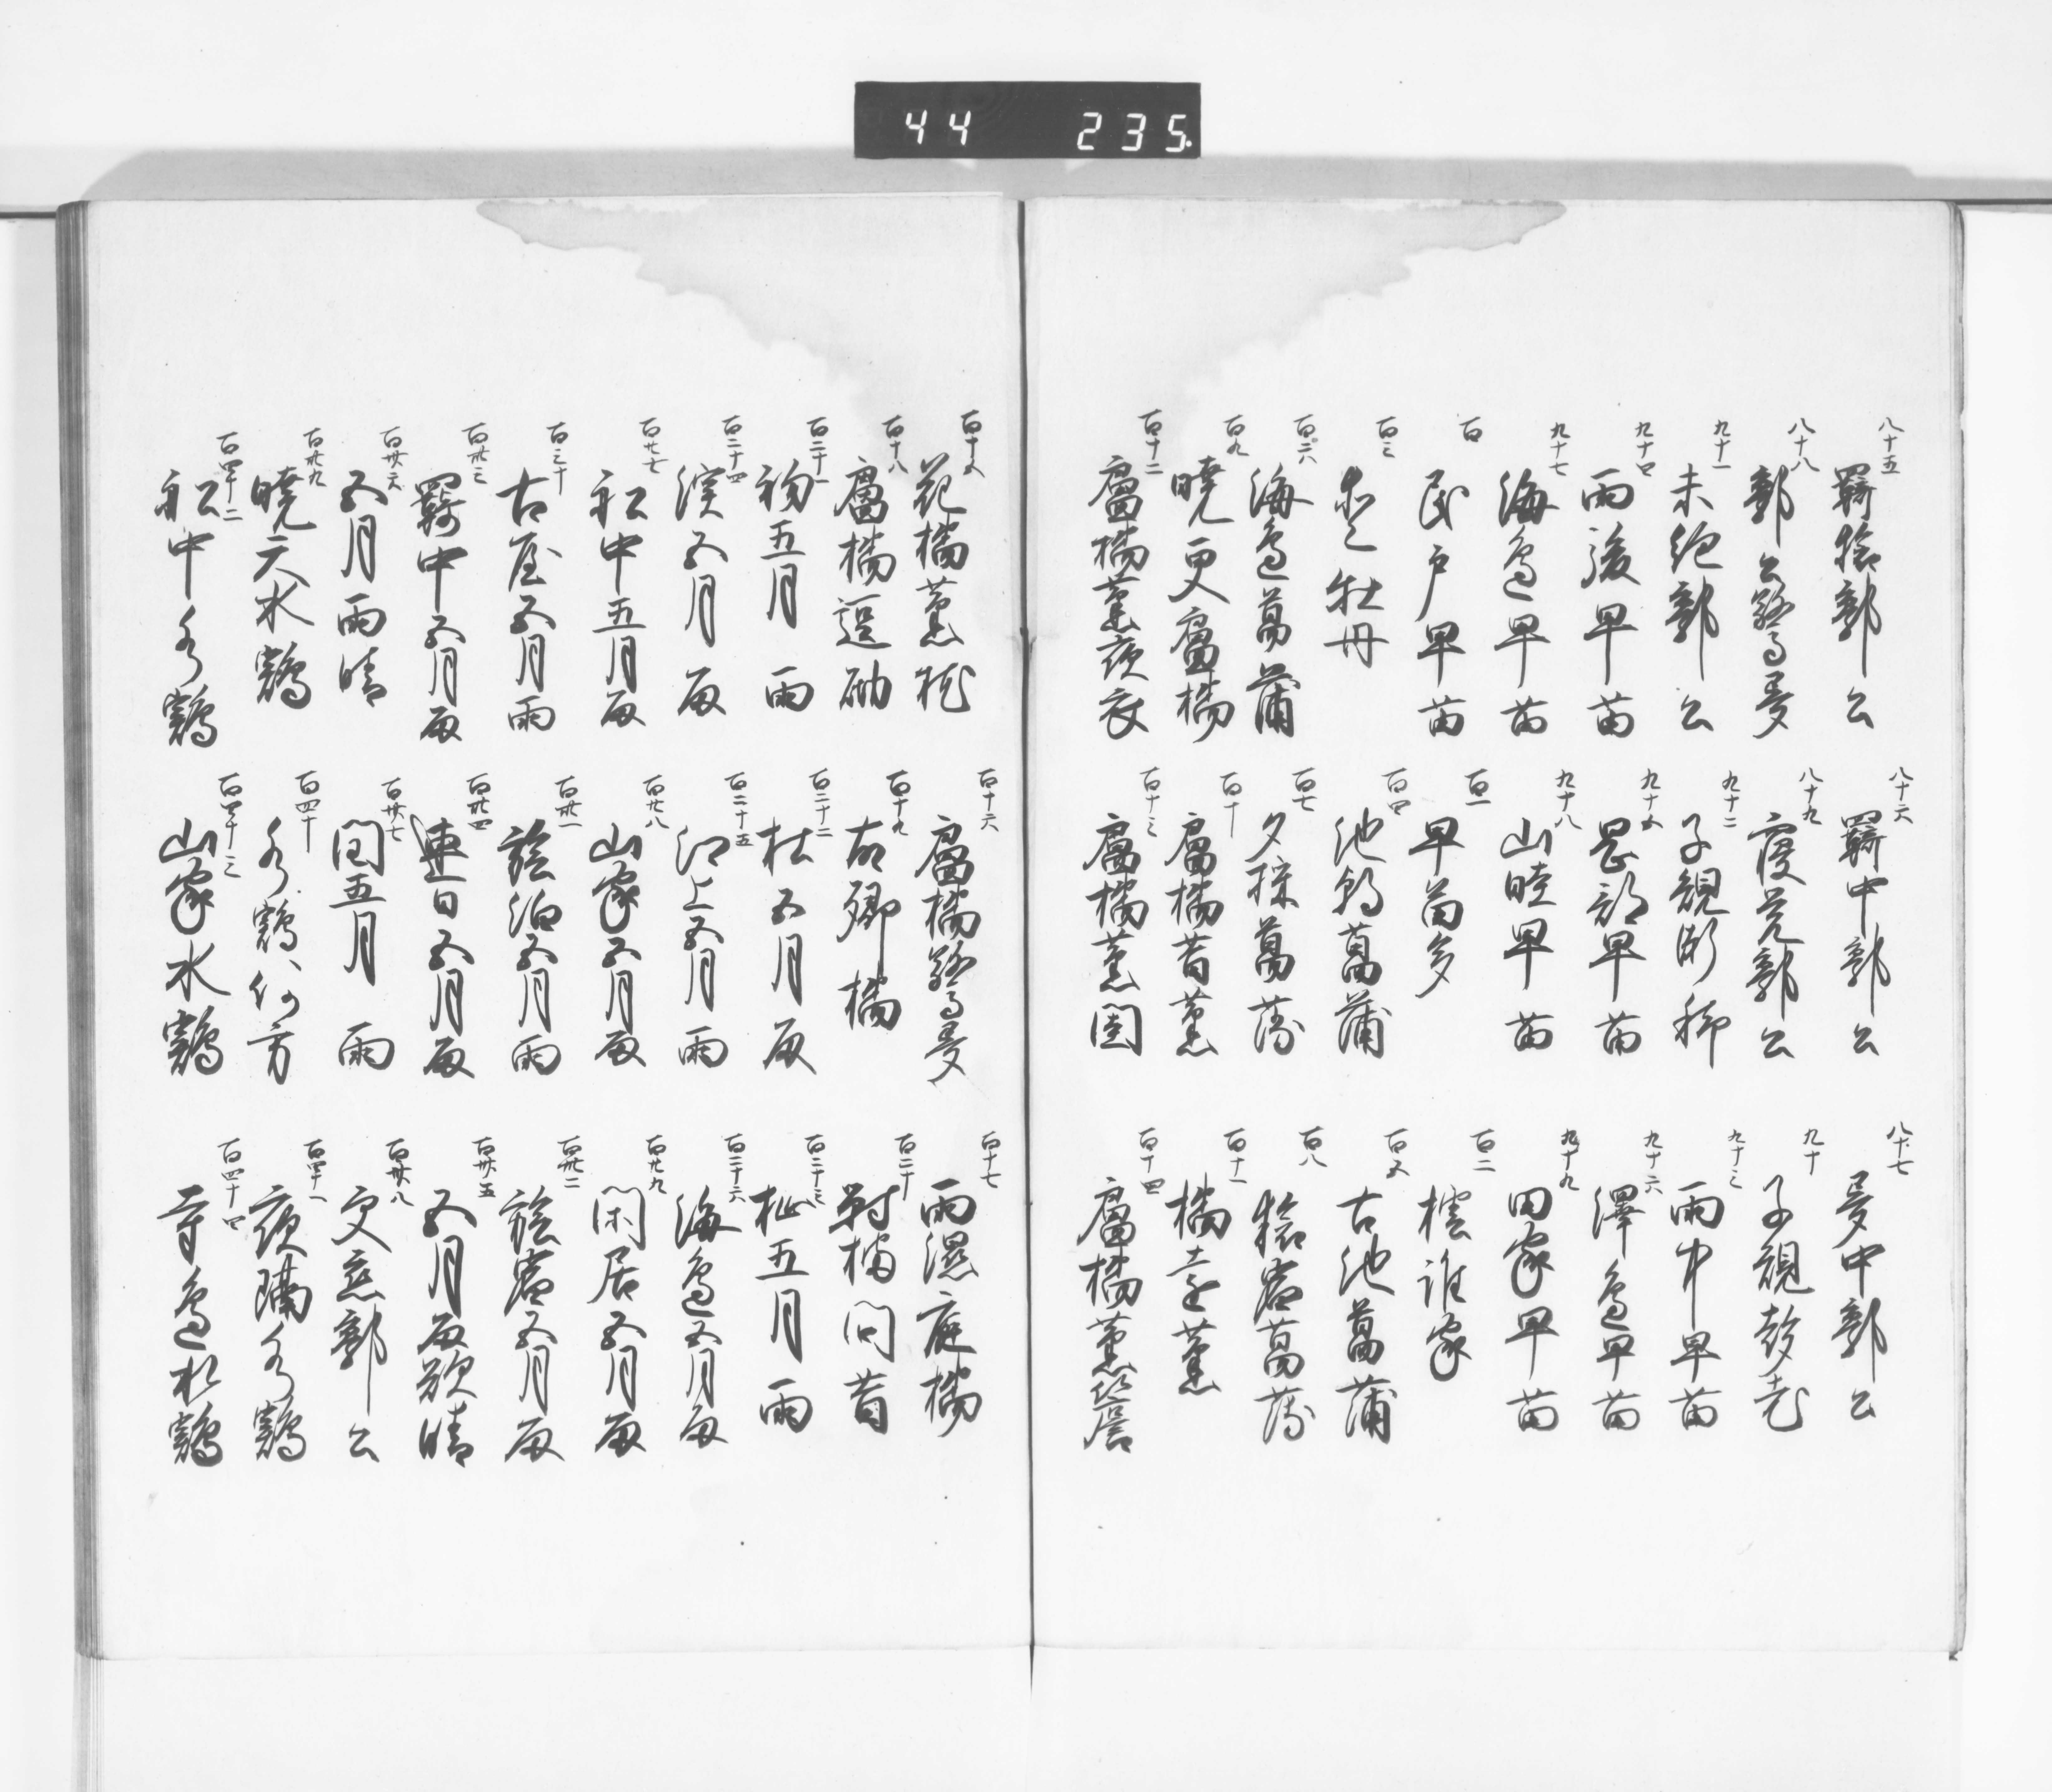 44 235
八十五 羇旅郭公
八十六 羇中郭公
八十七 夢中郭公
八十八 郭公驚夢
八十九 寝覚郭公
九十 子規
九十一 未絶郭公
九十二 子規漸稀
九十三 雨中早苗
九十四 雨後早苗
九十五 早苗
九十六 澤邊早苗
九十七 海邊早苗
九十八 山畦早苗
九十九 田家早苗
百 民戸早苗
百一 早苗多
百二 樗誰家
百三 牡丹
百四 池朝菖蒲
百五 古池菖蒲
百六 海邊菖蒲
百七 夕採菖蒲
百八 旅宿菖蒲
百九 曉更廬橘
百十 廬橘昔薫
百十一 橘遠薫
百十二 廬橘薫夜衣
百十三 廬橘薫閨
百十四 廬橘薫簷
百十五 花橘薫枕
百十六 廬橘驚夢
百十七 雨濕庭橘
百十八 廬橘遶砌
百十九 故郷橘
百二十 對橘問昔
百二十一 初五月雨
百二十二 杜五月雨
百二十三 杣五月雨
百二十四 濱五月雨
百二十五 江上五月雨
百二十六 海邊五月雨
百廿七 船中五月雨
百廿八 山家五月雨
百廿九 閑居五月雨
百三十 古屋五月雨
百卅一 旅泊五月雨
百卅二 旅宿五月雨
百卅三 羇中五月雨
百卅四 連日五月雨
百卅五 五月雨欲晴
百卅六 五月雨晴
百卅七 閏五月雨
百卅八 交恋郭公
百卅九 曉天水鶏
百四十 水鶏何方
百四十一 夜隣水鶏
百四十二 船中水鶏
百四十三 山家水鶏
百四十四 寺邊水鶏